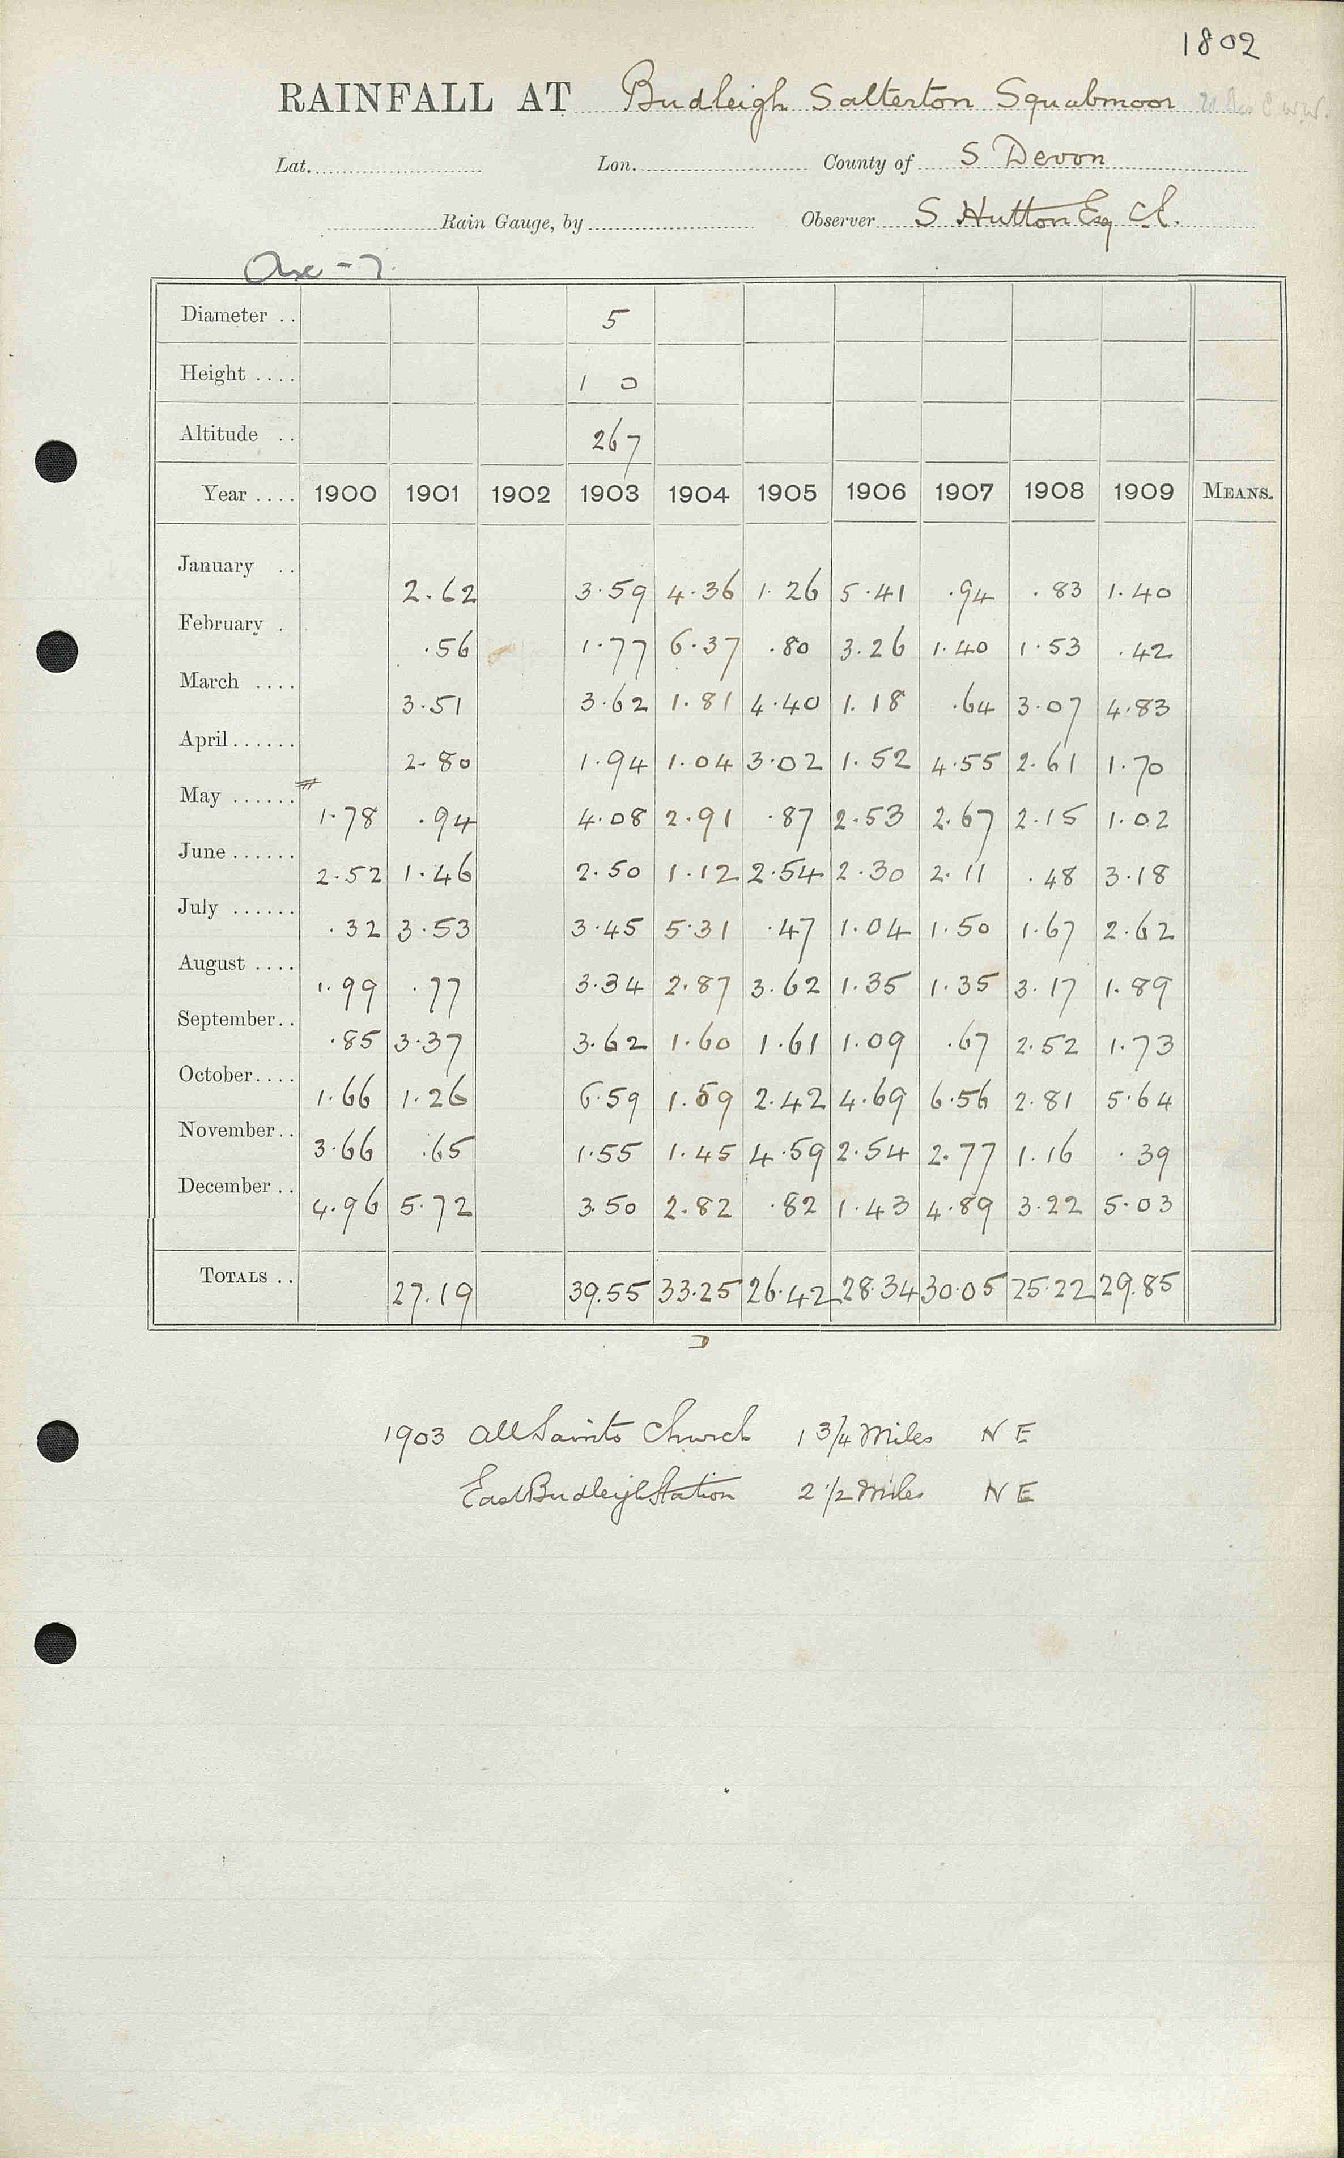 1802
RAINFALL AT Budleigh Salterton Squabmoor
Lat. Lon. County of S Devon
Rain Gauge, by Observer S Hutton Esq
Axe - 7.
Diameter .. 5
Height .... 1 0
Altitude .. 267
Year .... 1900 1901 1902 1903 1904 1905 1906 1907 1908 1909 MEANS.
January .. 2.62 3.59 4.36 1.26 5.41 .94 .83 1.40
February . .56 1.77 6.37 .80 3.26 1.40 1.53 .42
March .... 3.51 3.62 1.81 4.40 1.18 .64 3.07 4.83
April...... 2.80 1.94 1.04 3.02 1.52 4.55 2.61 1.70
May ...... 1.78 .94 4.08 2.91 .87 2.53 2.67 2.15 1.02
June...... 2.52 1.46 2.50 1.12 2.54 2.30 2.11 .48 3.18
July ...... .32 3.53 3.45 5.31 .47 1.04 1.50 1.67 2.62
August .... 1.99 .77 3.34 2.87 3.62 1.35 1.35 3.17 1.89
September.. .85 3.37 3.62 1.60 1.61 1.09 .67 2.52 1.73
October.... 1.66 1.26 6.59 1.59 2.42 4.69 6.56 2.81 5.64
November.. 3.66 .65 1.55 1.45 4.59 2.54 2.77 1.16 .39
December.. 4.96 5.72 3.50 2.82 .82 1.43 4.89 3.22 5.03
TOTALS .. 27.19 39.55 33.25 26.42 28.34 30.05 25.22 29.85
1903 All Saints Church 1 3/4 Miles N E
East Budleigh Station 2 1/2 Miles N E